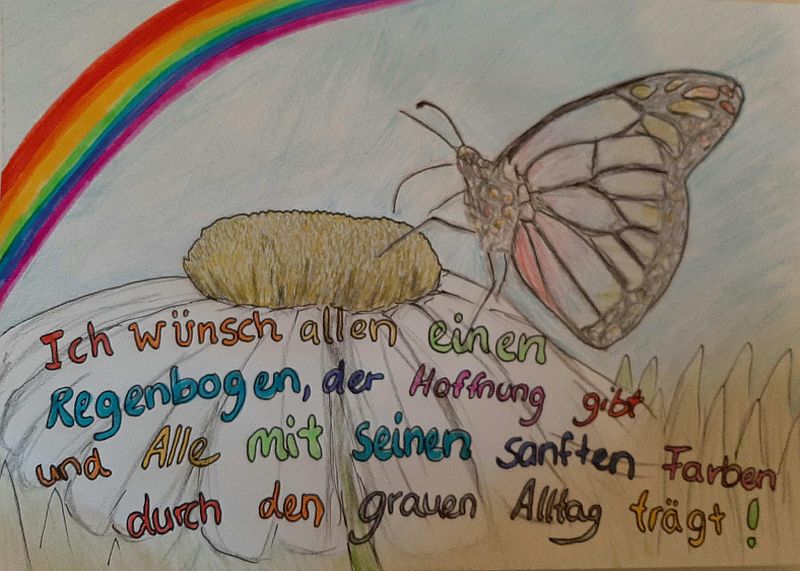 Ich wünsch allen einen
Regenbogen, der Hoffnung gibt
und Alle mit seinen sanften Farben
durch den grauen Alltag trägt!